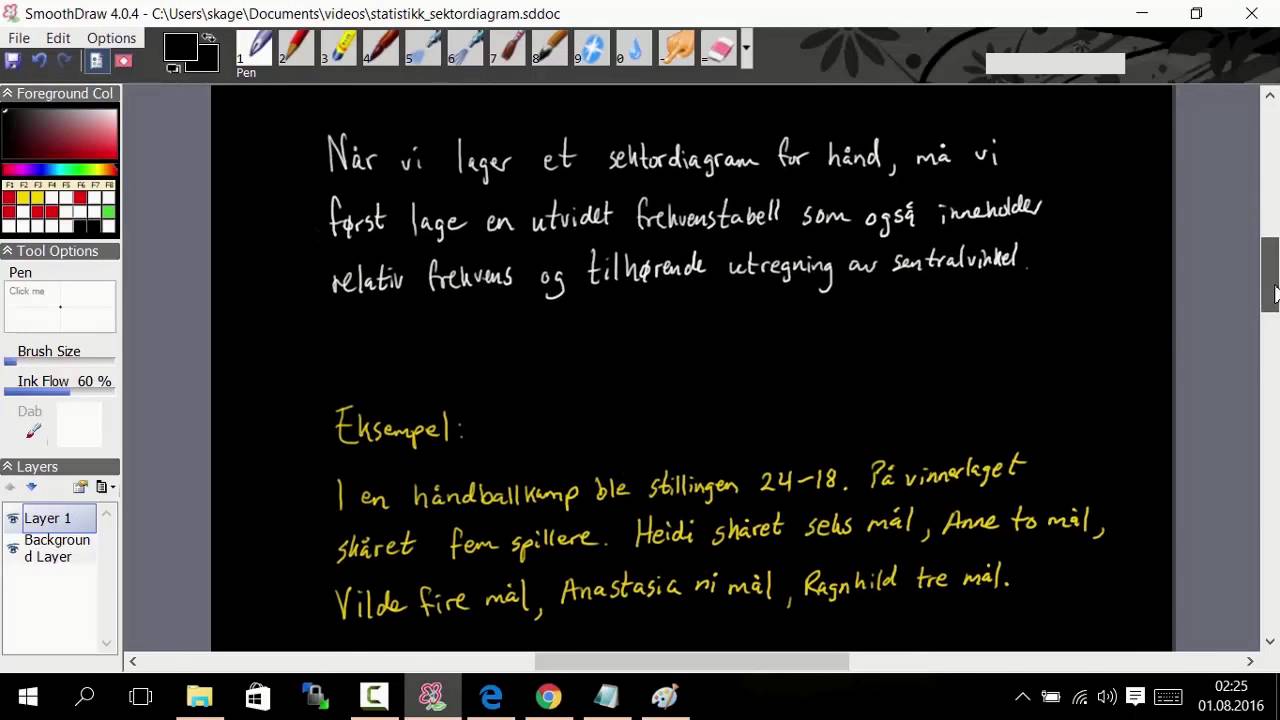 SmoothDraw 4.0.4 - C:\Users\skage\Documents\videos\statistikk_sektordiagram.sddoc
File Edit Options
1 2 3 4 5 6 7 8 9 0 - =
Pen
Foreground Col
F1 F2 F3 F4 F5 F6 F7 F8
Tool Options
Pen
Click me
Brush Size
Ink Flow 60 %
Dab
Layers
Layer 1
Backgroun
d Layer
Når vi lager et sektordiagram for hånd, må vi
først lage en utvidet frekvenstabell som også inneholder
relativ frekvens og tilhørende utregning av sentralvinkel.
Eksempel:
I en håndballkamp ble stillingen 24-18. På vinnerlaget
skåret fem spillere. Heidi skåret seks mål, Anne to mål,
Vilde fire mål, Anastasia ni mål, Ragnhild tre mål.
02:25
01.08.2016